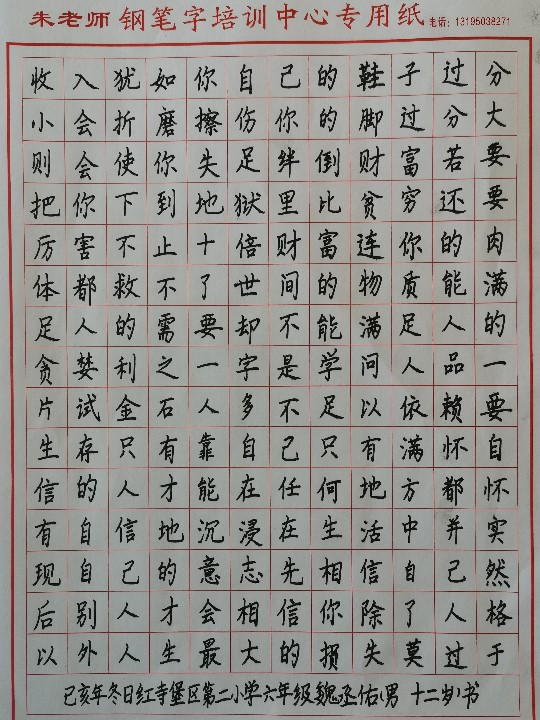 朱老师钢笔字培训中心专用纸 电话：13195038271
收入犹如你自己的鞋子过分
小会折磨擦伤你的脚过分大
则会使你失足绊倒财富若要
把你下到地狱里比贫穷还要
厉害不止十倍财富连你的肉
体都救不了世间的物质能满
足人的需要却不能满足人的
贪婪利之一字是学问人品一
片试金石人多不足以依赖要
生存只有靠自己只有满怀自
信的人才能在任何地方都怀
有自信地沉浸在生活中并实
现自己的意志先相信自己然
后别人才会相信你除了人格
以外人生最大的损失莫过于
己亥年冬日红寺堡区第二小学六年级魏丞佑(男 十二岁)书